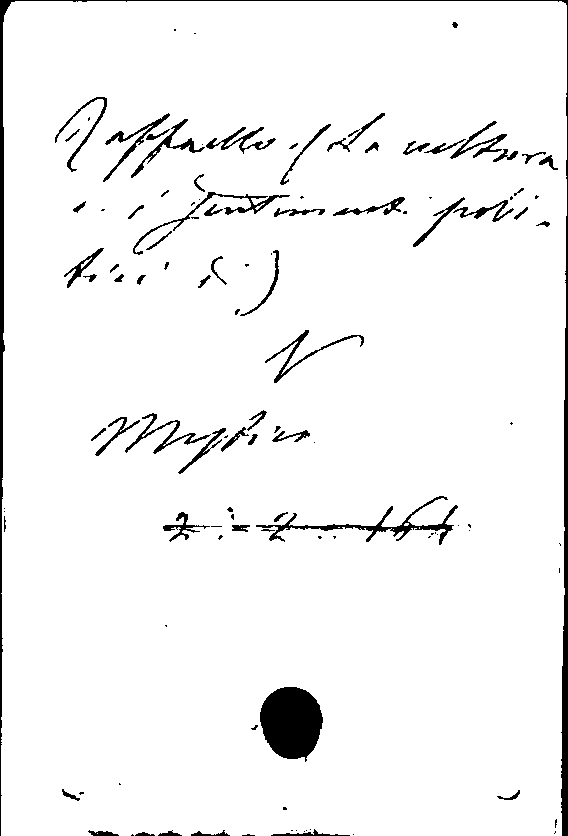 Raffaello. (La cultura
e i sentimenti poli-
tici di)
V
2-2-161